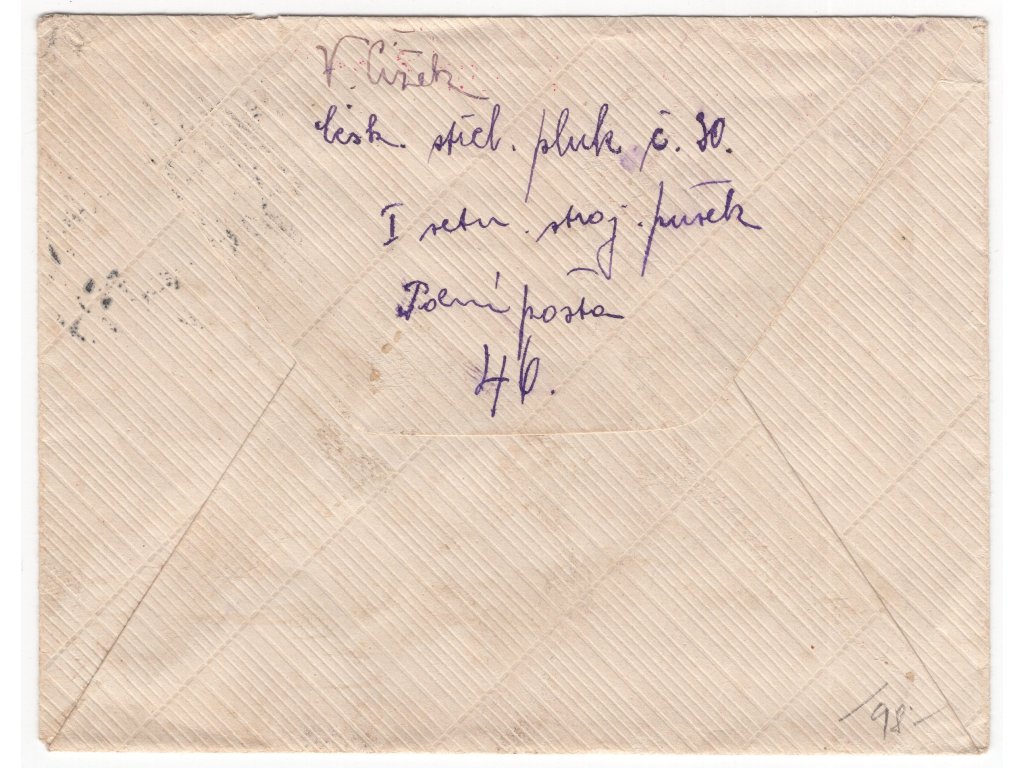 V Čížek
česk. střel. pluk č. 30.
I setn. stroj. pušek
Polní pošta
46.
/98-